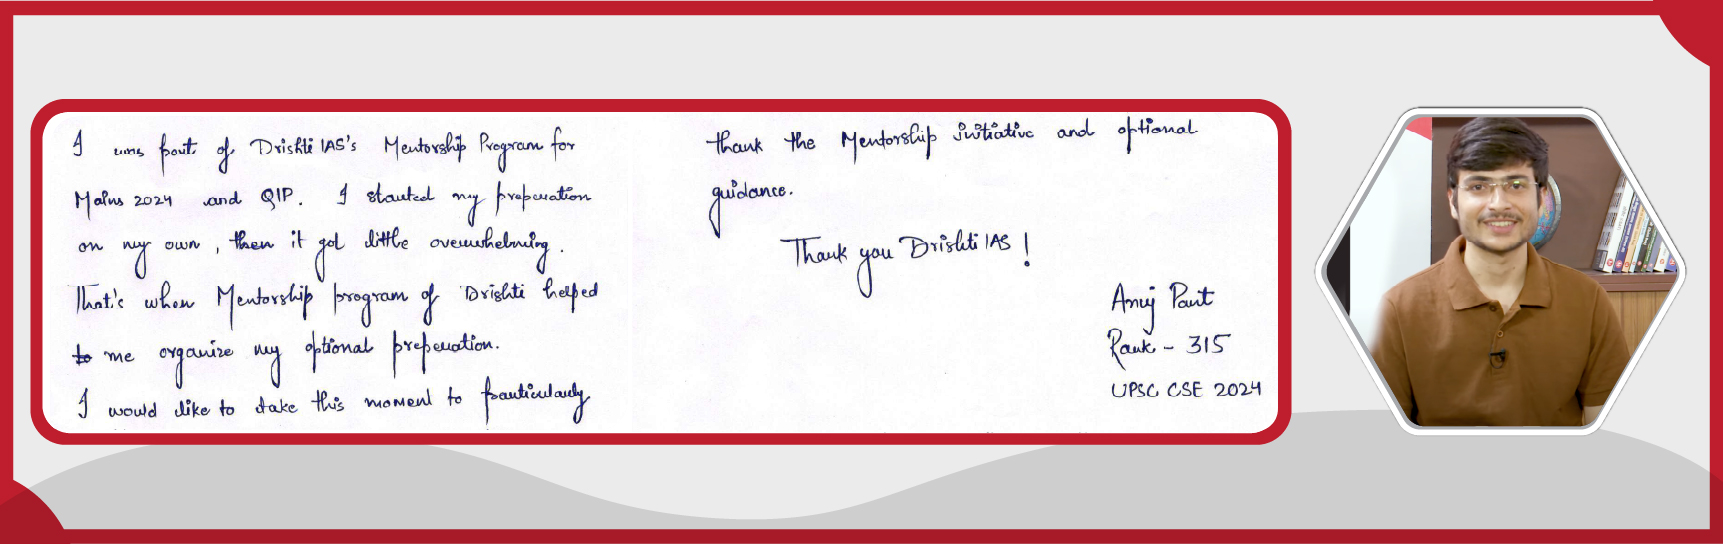 I was part of Drishti IAS's Mentorship Program for
Mains 2024 and QIP. I started my preparation
on my own, then it got little overwhelming.
That's when Mentorship program of Drishti helped
to me organize my optional preperation.
I would like to take this moment to particularly
thank the Mentorship initiative and optional
guidance.
Thank you Drishti IAS!
Anuj Pant
Rank - 315
UPSC CSE 2024